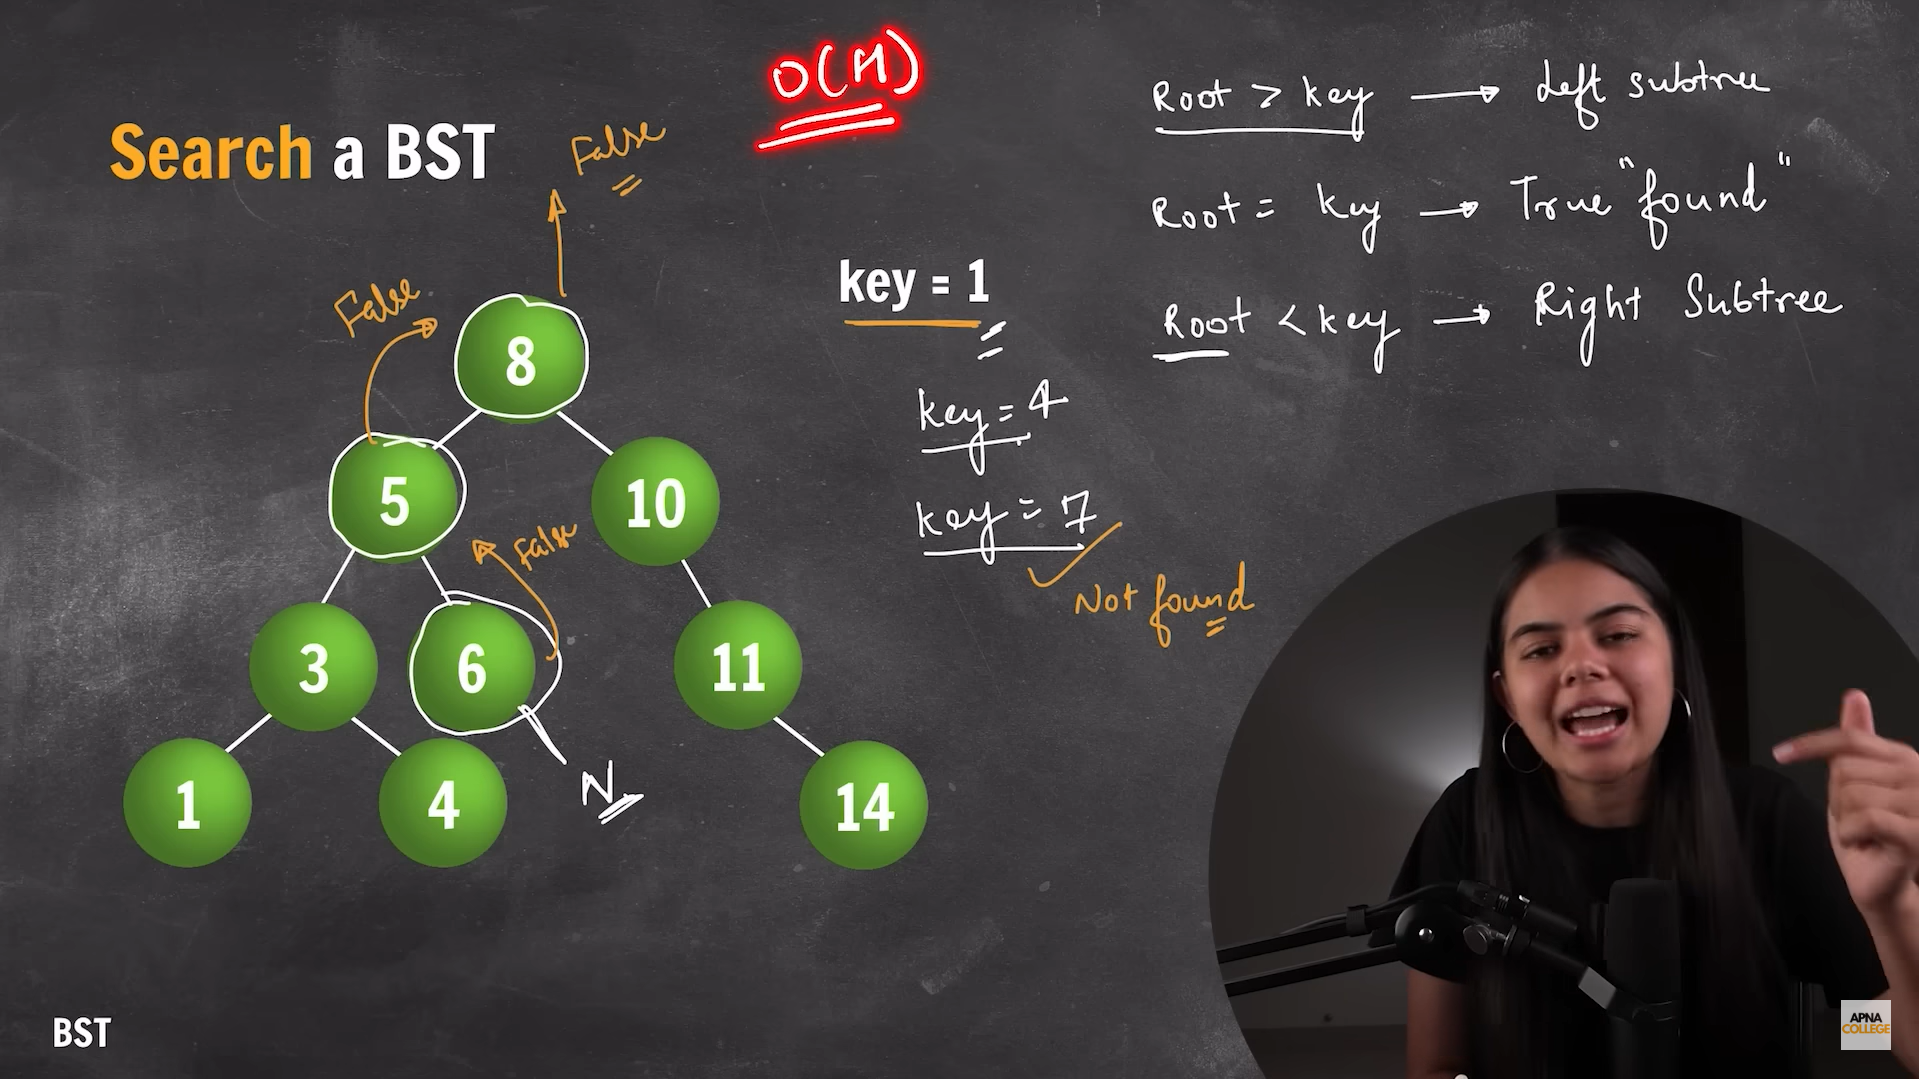 O(H)
Search a BST
False
False
8
5
10
False
3
6
11
1
4
N
14
key = 1
key = 4
key = 7
Not found
Root > key → Left subtree
Root = key → True "found"
Root < key → Right Subtree
BST
APNA
COLLEGE